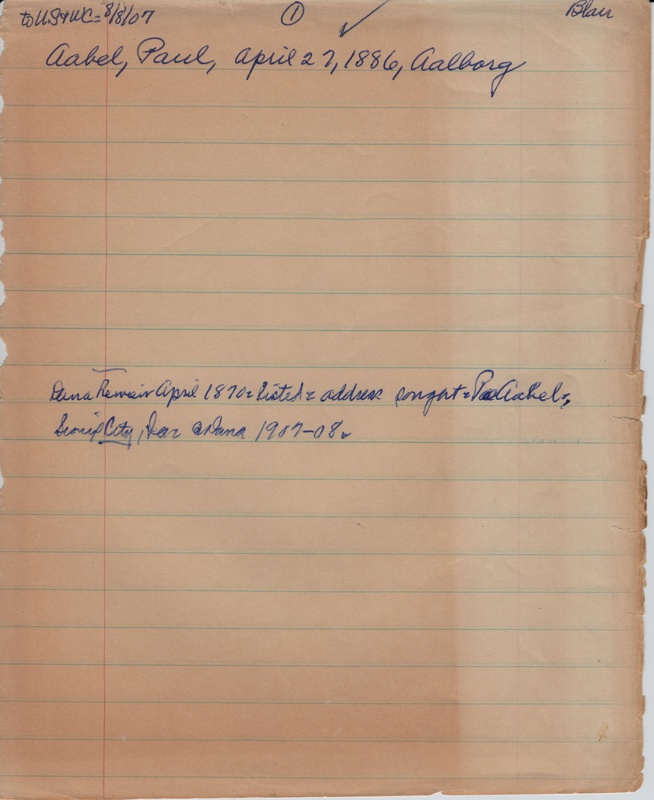 to US & WC = 8/8/07 ① ✓ Blair
Aabel, Paul, April 27, 1886, Aalborg
Dana Review April 1970 = Listed = address sought = Aabel =
Sioux City, Ia = @ Dana 1907-08 =